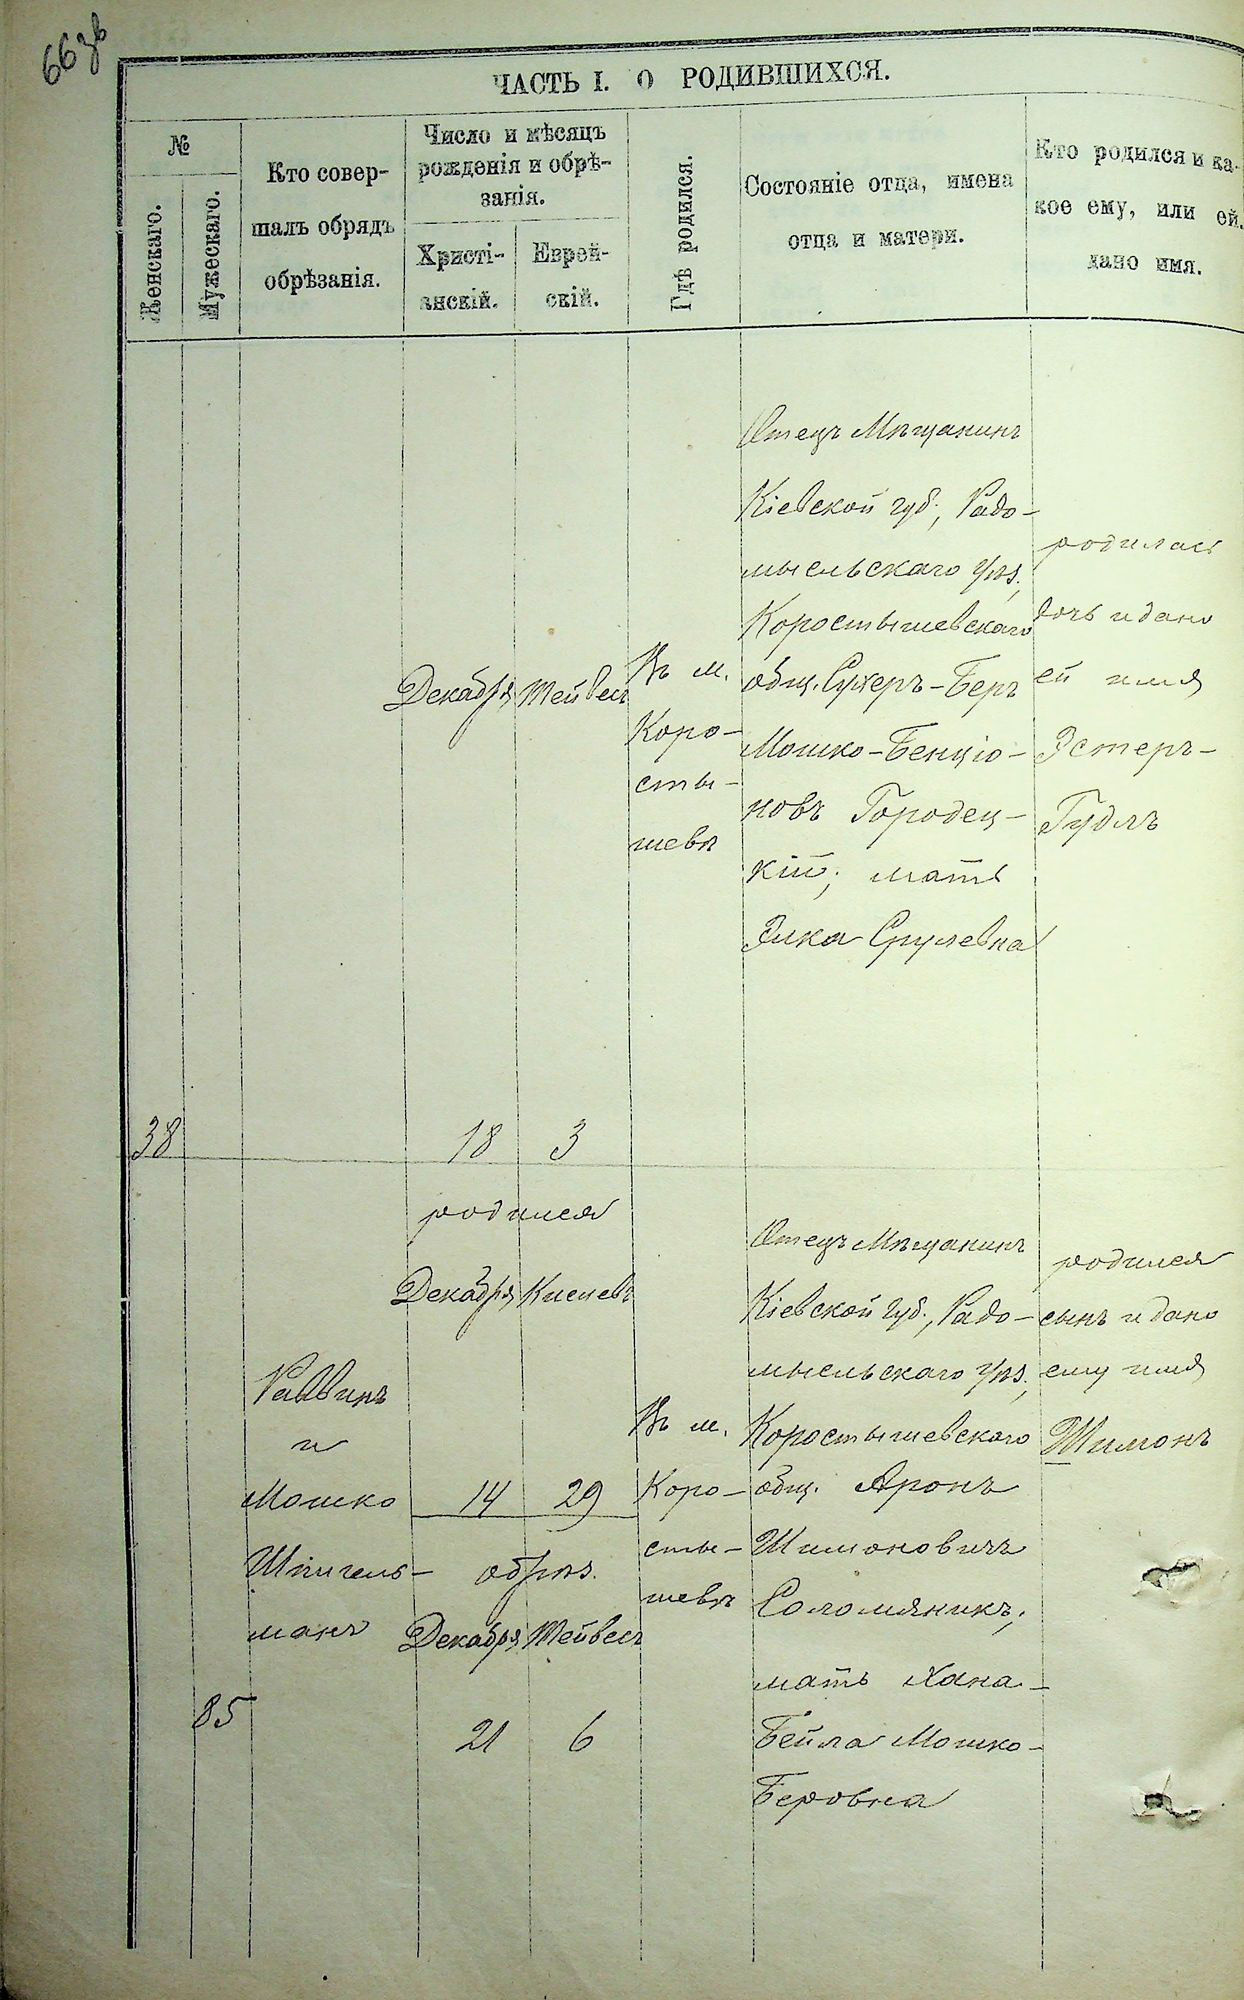 66 зв
ЧАСТЬ I. О РОДИВШИХСЯ.
№
Женскаго.
Мужескаго.
Кто совер-
шалъ обрядъ
обрѣзанія.
Число и мѣсяцъ
рожденія и обрѣ-
занія.
Христі-
анскій.
Еврей-
скій.
Гдѣ родился.
Состояніе отца, имена
отца и матери.
Кто родился и ка-
кое ему, или ей
дано имя.
38
Декабря
18
Тейвесъ
3
Въ м.
Коро-
сты-
шевѣ
Отецъ Мѣщанинъ
Кіевской губ., Радо-
мысльскаго уѣз.,
Коростышевскаго
общ. Сухеръ-Беръ
Мошко-Бенціо-
новъ Городец-
кій; мать
Элка Срулевна
родилась
дочь и дано
ей имя
Эстеръ-
Гудль
85
Раввинъ
и
Мошко
Шпигель-
манъ
родился
Декабря Кислевъ
14 29
обрѣз.
Декабря Тейвесъ
21 6
Въ м.
Коро-
сты-
шевѣ
Отецъ Мѣщанинъ
Кіевской губ., Радо-
мысльскаго уѣз.,
Коростышевскаго
общ. Аронъ
Шимоновичъ
Соломяникъ;
мать Хана-
Бейла Мошко-
Беровна
родился
сынъ и дано
ему имя
Шимонъ